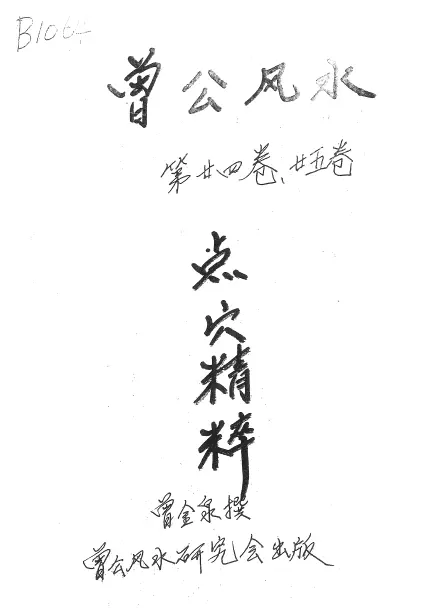 B1064
曾公风水
第廿四卷、廿五卷
点穴精粹
曾金泉撰
曾公风水研究会出版